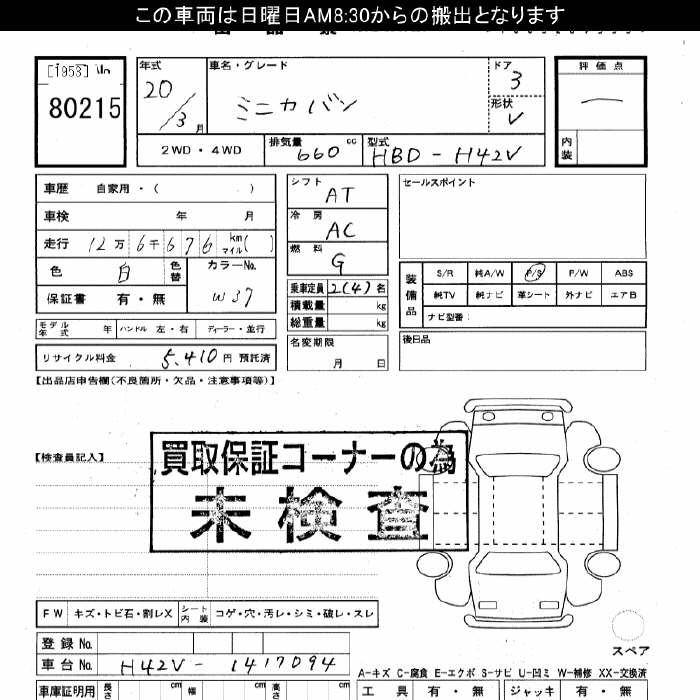 この車両は日曜日AM8:30からの搬出となります
[1953]
80215
年式 車名・グレード ドア 評価点
20/3月 ミニカバン 3 一
形状 V
2WD・4WD 排気量 660 cc 型式 HBD-H42V 内装
車歴 自家用・( )
車検 年 月
走行 12万6千676 km マイル( )
色 白 色替 カラーNo. W37
保証書 有・無
モデル年式 年 ハンドル 左・右 ディーラー・並行
リサイクル料金 5,410円 預託済
シフト AT
冷房 AC
燃料 G
乗車定員 2(4)名
積載量 kg
総重量 kg
名変期限
月 日
セールスポイント
装備品 S/R 純A/W P/S P/W ABS
純TV 純ナビ 革シート 外ナビ エアB
ナビ型番:
後日品
【出品店申告欄(不良箇所・欠品・注意事項等)】
【検査員記入】
買取保証コーナーの為
未検査
FW キズ・トビ石・割レX シート内装 コゲ・穴・汚レ・シミ・破レ・スレ
スペア
登録No.
車台No. H42V-1417094
A-キズ C-腐食 E-エクボ S-サビ U-凹ミ W-補修 XX-交換済
車庫証明用 長さ cm 幅 cm 高さ cm 工具 有・無 ジャッキ 有・無